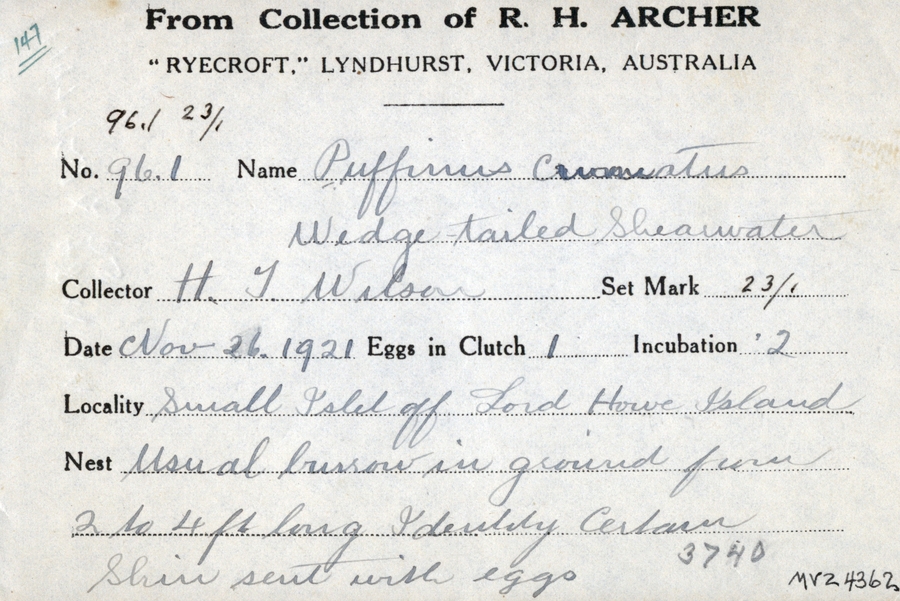 147
From Collection of R. H. ARCHER
"RYECROFT," LYNDHURST, VICTORIA, AUSTRALIA
96.1 23/1
No. 96.1 Name Puffinus
Wedge-tailed Shearwater
Collector H. T. Wilson Set Mark 23/1
Date Nov 26. 1921 Eggs in Clutch 1 Incubation '2
Locality Small Islet off Lord Howe Island
Nest Usual burrow in ground from
2 to 4 ft long Identity Certain
Skin sent with eggs
3740
MVZ 4362